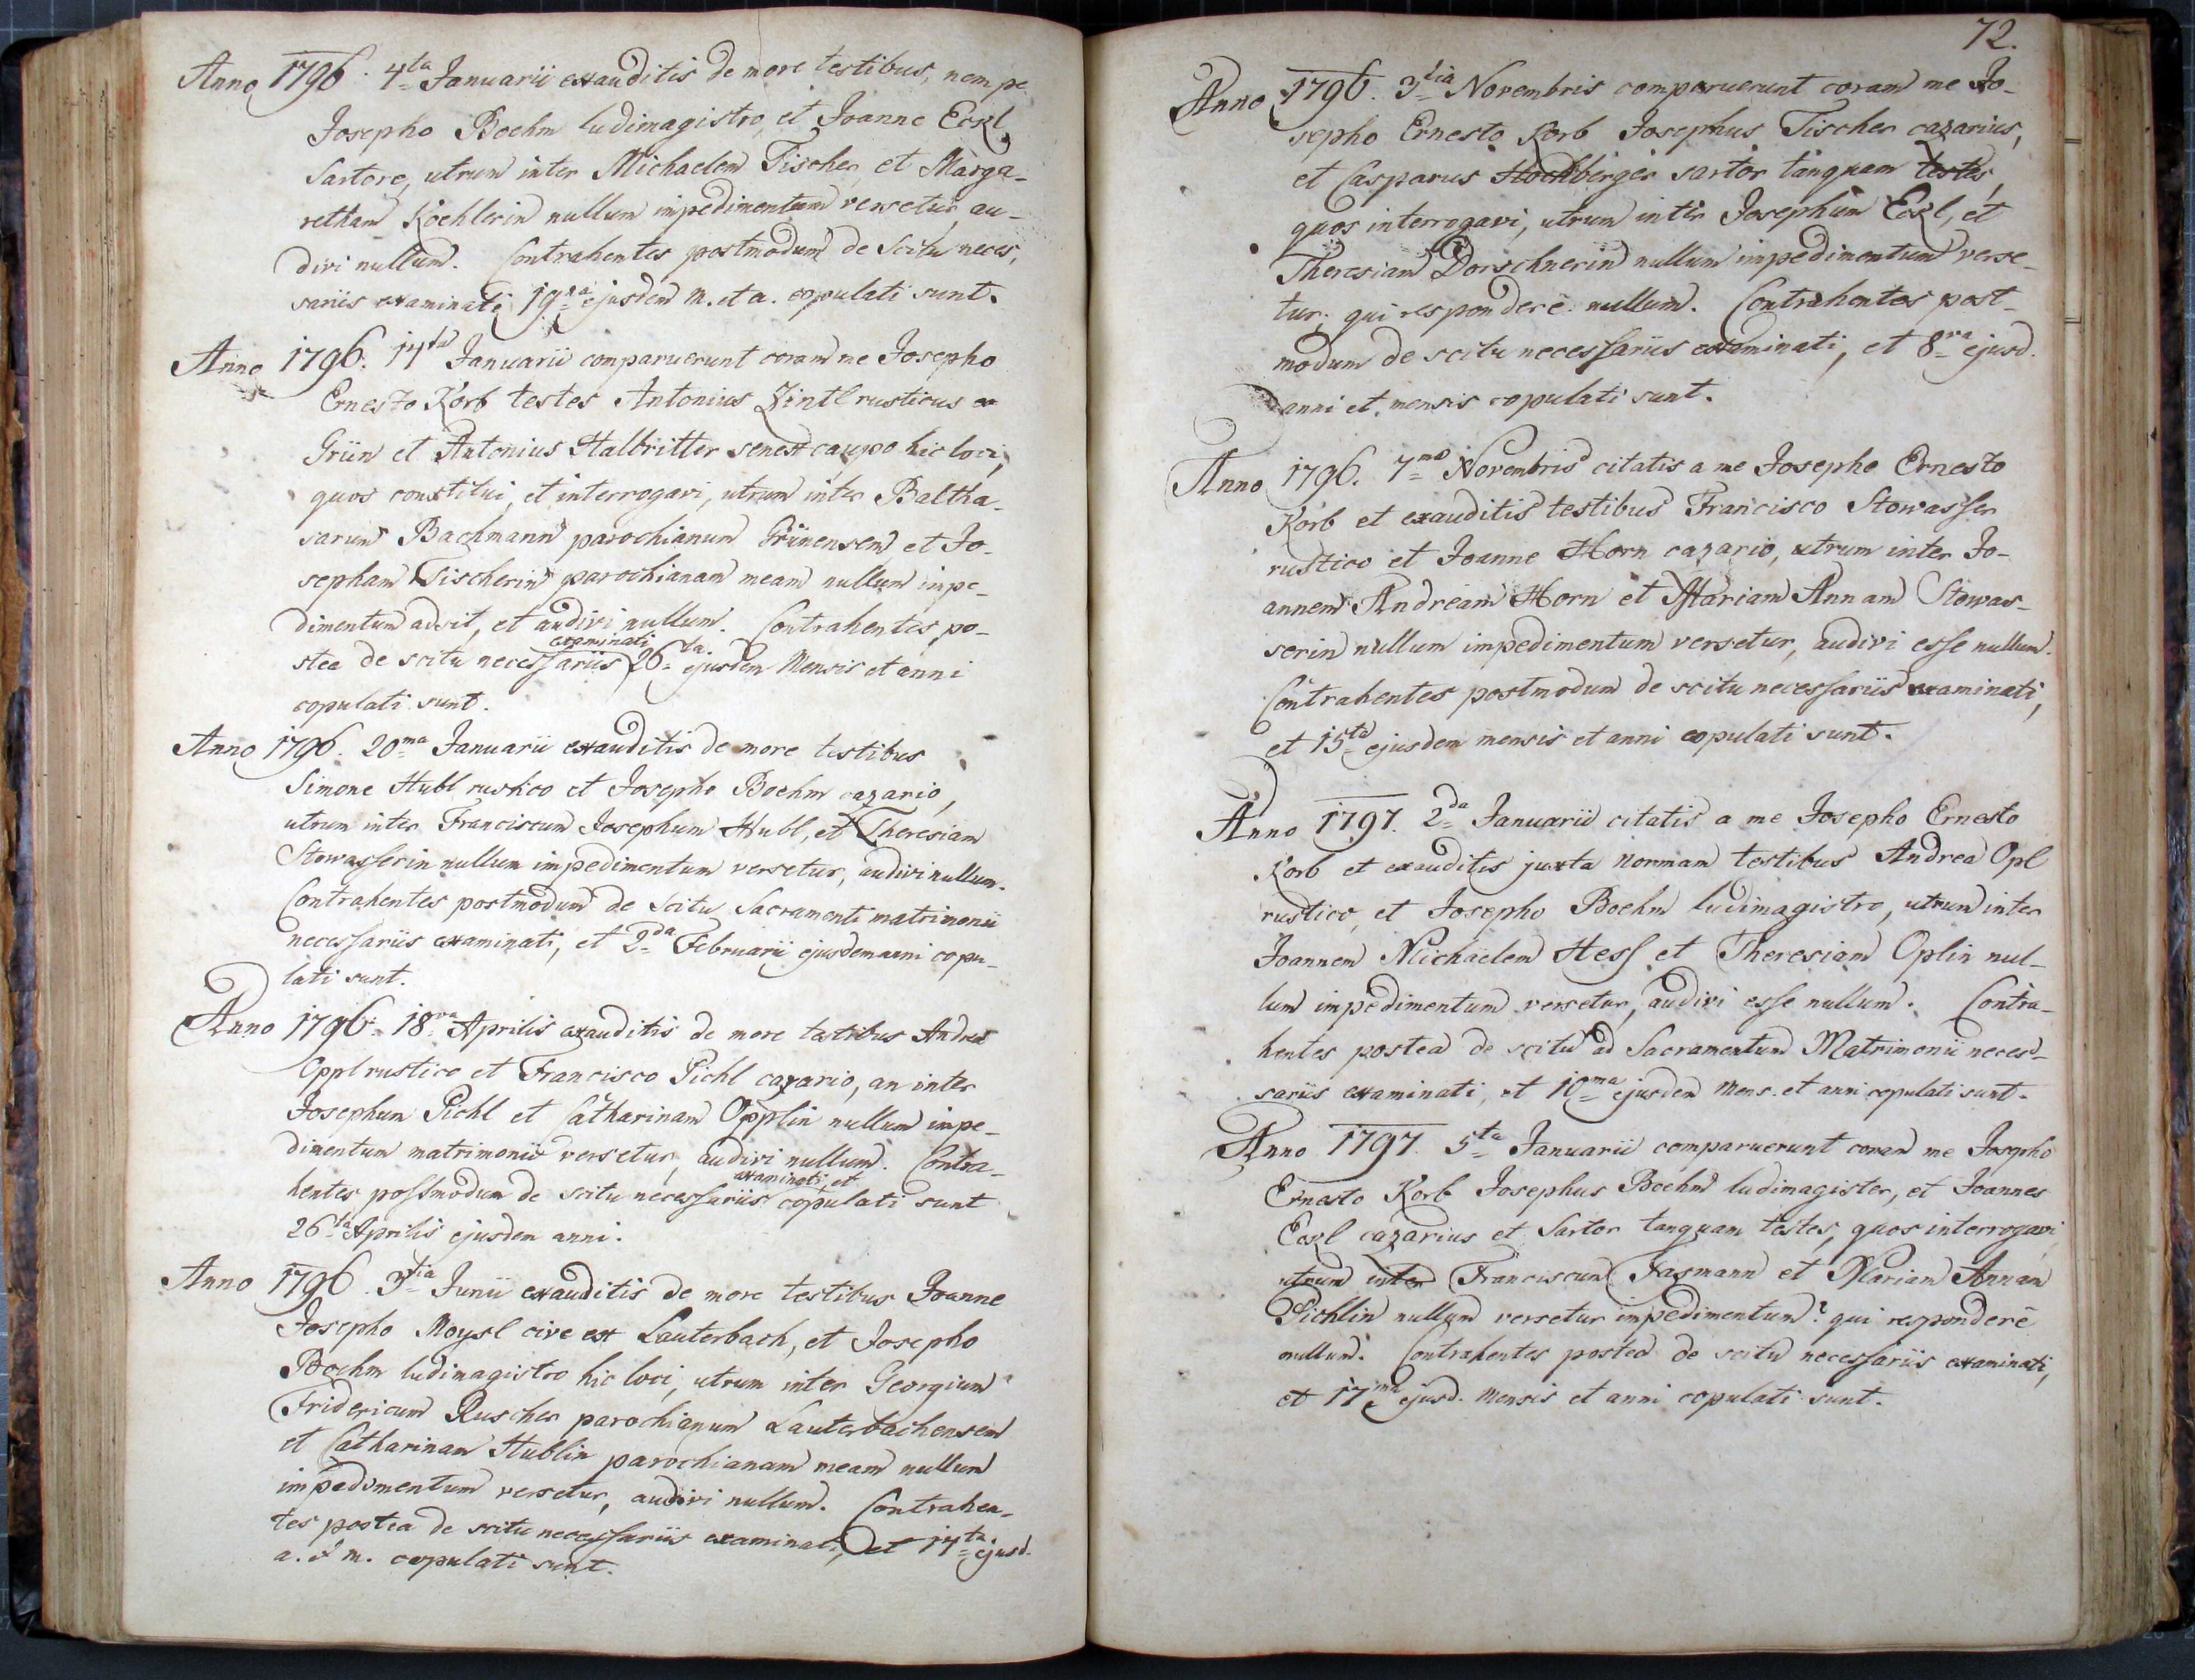 Anno 1796. 4ta Januarii exauditis de more testibus, nempe
Josepho Boehm ludimagistro, et Joanne Eckl
Sartore, utrum inter Michaelem Fischer, et Marga-
retham Koehlerin nullum impedimentum versetur, au-
divi nullum. Contrahentes postmodum de scitu neces,
sariis examinati 19na ejusdem m. et a. copulati sunt.
Anno 1796. 14ta Januarii comparuerunt coram me Josepho
Ernesto Korb testes Antonius Zintl rusticus ex
Grün et Antonius Halbritter senex caupo hic loci,
quos constitui, et interrogavi, utrum inter Baltha-
sarum Bachmann parochianum Grünensem et Jo-
sepham Fischerin parochianam meam nullum impe-
dimentum adsit, et audivi nullum. Contrahentes, po-
stea de scitu necessariis examinati 26ta ejusdem Mensis et anni
copulati sunt.
Anno 1796. 20ma Januarii exauditis de more testibus
Simone Hubl rustico et Josepho Boehm cazario,
utrum inter Franciscum Josephum Hubl, et Theresiam
Stowasserin nullum impedimentum versetur, audivi nullum.
Contrahentes postmodum de scitu Sacramenti matrimonii
necessariis examinati, et 2da Februarii ejusdem anni copu-
lati sunt.
Anno 1796. 18va Aprilis exauditis de more testibus Andrea
Oppl rustico et Francisco Pichl cazario, an inter
Josephum Pichl et Catharinam Opplin nullum impe-
dimentum matrimonii versetur, audivi nullum. Contra-
hentes postmodum de scitu necessariis examinati, et copulati sunt
26ta Aprilis ejusdem anni.
Anno 1796. 3tia Junii exauditis de more testibus Joanne
Josepho Moysl cive ex Lauterbach, et Josepho
Boehm ludimagistro hic loci, utrum inter Georgium
Fridericum Ruscher parochianum Lauterbachensem
et Catharinam Hublin parochianam meam nullum
impedimentum versetur, audivi nullum. Contrahen-
tes postea de scitu necessariis examinati, et 14ta ejusd.
a. & m. copulati sunt.
72.
Anno 1796. 3tia Novembris comparuerunt coram me Jo-
sepho Ernesto Korb Josephus Fischer cazarius,
et Casparus Hochberger sartor tanquam testes,
quos interrogavi, utrum inter Josephum Eckl, et
Theresiam Dorschnerin nullum impedimentum verse-
tur; qui respondere nullum. Contrahentes post-
modum de scitu necessariis examinati, et 8va ejusd.
anni et mensis copulati sunt.
Anno 1796. 7ma Novembris citatis a me Josepho Ernesto
Korb et exauditis testibus Francisco Stowasser
rustico et Joanne Horn cazario, utrum inter Jo-
annem Andream Horn et Mariam Annam Stowas-
serin nullum impedimentum versetur, audivi esse nullum.
Contrahentes postmodum de scitu necessariis examinati,
et 15ta ejusdem mensis et anni copulati sunt.
Anno 1797. 2da Januarii citatis a me Josepho Ernesto
Korb et exauditis juxta normam testibus Andrea Opl
rustico, et Josepho Boehm ludimagistro, utrum inter
Joannem Michaelem Hess et Theresiam Oplin nul-
lum impedimentum versetur, audivi esse nullum. Contra-
hentes postea de scitu ad Sacramentum Matrimonii neces-
sariis examinati, et 10ma ejusdem Mens. et anni copulati sunt.
Anno 1797. 5ta Januarii comparuerunt coram me Josepho
Ernesto Korb Josephus Boehm ludimagister, et Joannes
Eckl cazarius et Sartor tanquam testes, quos interrogavi
utrum inter Franciscum Fasmann et Mariam Annam
Pichlin nullum versetur impedimentum? qui respondere
nullum. Contrahentes postea de scitu necessariis examinati,
et 17ma ejusd. Mensis et anni copulati sunt.